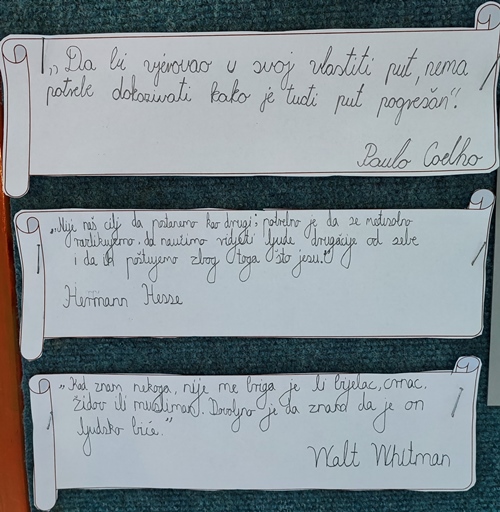 „Da bi vjerovao u svoj vlastiti put, nema
potrebe dokazivati kako je tuđi put pogrešan“.
Paulo Coelho
„Nije naš cilj da postanemo kao drugi; potrebno je da se međusobno
razlikujemo, da naučimo vidjeti ljude drugačije od sebe
i da ih poštujemo zbog toga što jesu.“
Hermann Hesse
„Kad znam nekoga, nije me briga je li bijelac, crnac,
židov ili musliman. Dovoljno je da znam da je on
ljudsko biće.“
Walt Whitman